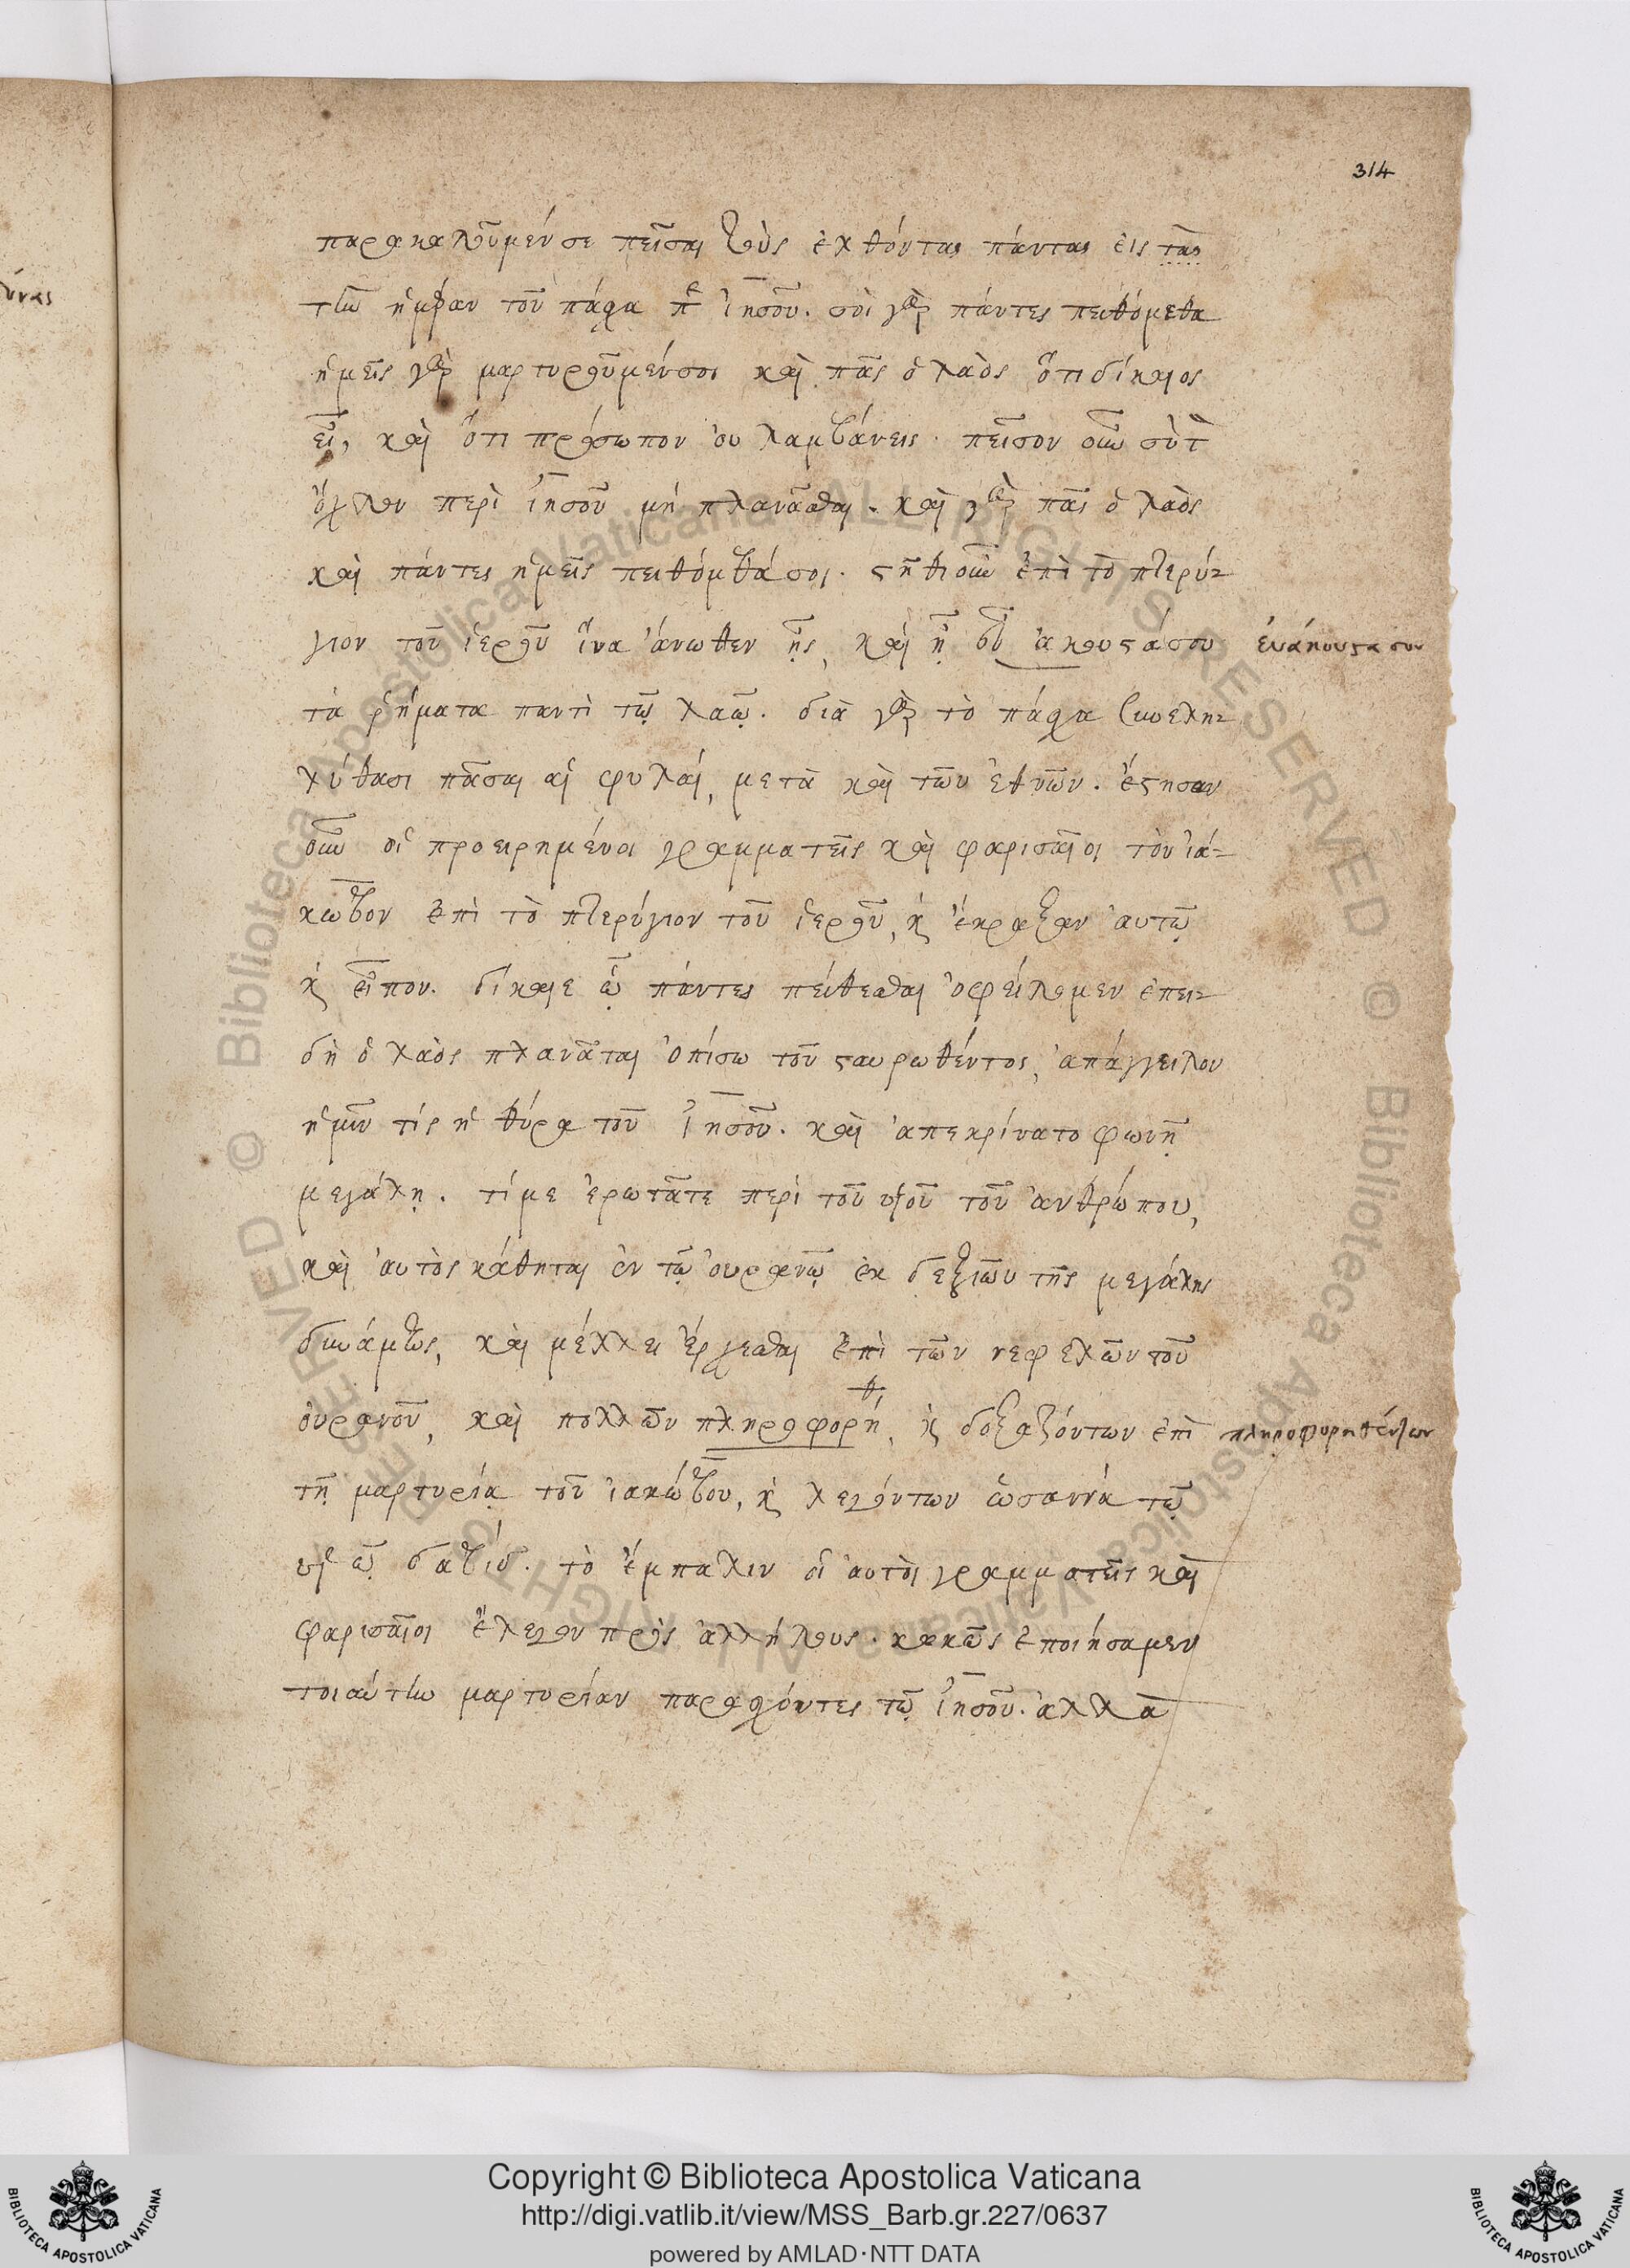 314
παρακαλοῦμέν σε πεῖσαι τοὺς ἐλθόντας πάντας εἰς τὰς
τὴν ἡμέραν τοῦ πάσχα περὶ ἰησοῦ. σοὶ γὰρ πάντες πειθόμεθα
ἡμεῖς γὰρ μαρτυροῦμέν σοι καὶ πᾶς ὁ λαὸς ὅτι δίκαιος
εἶ, καὶ ὅτι πρόσωπον οὐ λαμβάνεις. πεῖσον οὖν σὺ τ̀
ὄχλον περὶ ἰησοῦ μὴ πλανᾶσθαι. καὶ γὰρ πᾶς ὁ λαὸς
καὶ πάντες ἡμεῖς πειθόμεθά σοι. στῆθι οὖν ἐπὶ τὸ πτερύ-
γιον τοῦ ἱεροῦ ἵνα ἄνωθεν ᾖς, καὶ ᾖ εὖ ἀκουστά σου
εὐάκουστα σου
τὰ ῥήματα παντὶ τῷ λαῷ. διὰ γὰρ τὸ πάσχα συνελη-
λύθασι πᾶσαι αἱ φυλαί, μετὰ καὶ τῶν ἐθνῶν. ἔστησαν
οὖν οἱ προειρημένοι γραμματεῖς καὶ φαρισαῖοι τὸν ἰά-
κωβον ἐπὶ τὸ πτερύγιον τοῦ ἱεροῦ, κ̀ ἔκραξαν αὐτῷ
κ̀ εἶπον. δίκαιε ᾧ πάντες πείθεσθαι ὀφείλομεν ἐπει-
δὴ ὁ λαὸς πλανᾶται ὀπίσω τοῦ σταυρωθέντος, ἀπάγγειλον
ἡμῖν τίς ἡ θύρα τοῦ ἰησοῦ. καὶ ἀπεκρίνατο φωνῇ
μεγάλῃ. τί με ἐρωτᾶτε περὶ τοῦ υἱοῦ τοῦ ἀνθρώπου,
καὶ αὐτὸς κάθηται ἐν τῷ οὐρανῷ ἐκ δεξιῶν τῆς μεγάλης
δυνάμεως, καὶ μέλλει ἔρχεσθαι ἐπὶ τῶν νεφελῶν τοῦ
οὐρανοῦ, καὶ πολλῶν πληροφορηθ, κ̀ δοξαζόντων ἐπὶ
πληροφορηθέντων
τῇ μαρτυρίᾳ τοῦ ἰακώβου, κ̀ λεγόντων ὡσαννὰ τῷ
υἱῷ δαβίδ. τὸ ἔμπαλιν οἱ αὐτοὶ γραμματεῖς καὶ
φαρισαῖοι ἔλεγον πρὸς ἀλλήλους. κακῶς ἐποιήσαμεν
τοιαύτην μαρτυρίαν παρασχόντες τῷ ἰησοῦ. ἀλλὰ
Copyright © Biblioteca Apostolica Vaticana
http://digi.vatlib.it/view/MSS_Barb.gr.227/0637
powered by AMLAD·NTT DATA
BIBLIOTECA APOSTOLICA VATICANA
BIBLIOTECA APOSTOLICA VATICANA